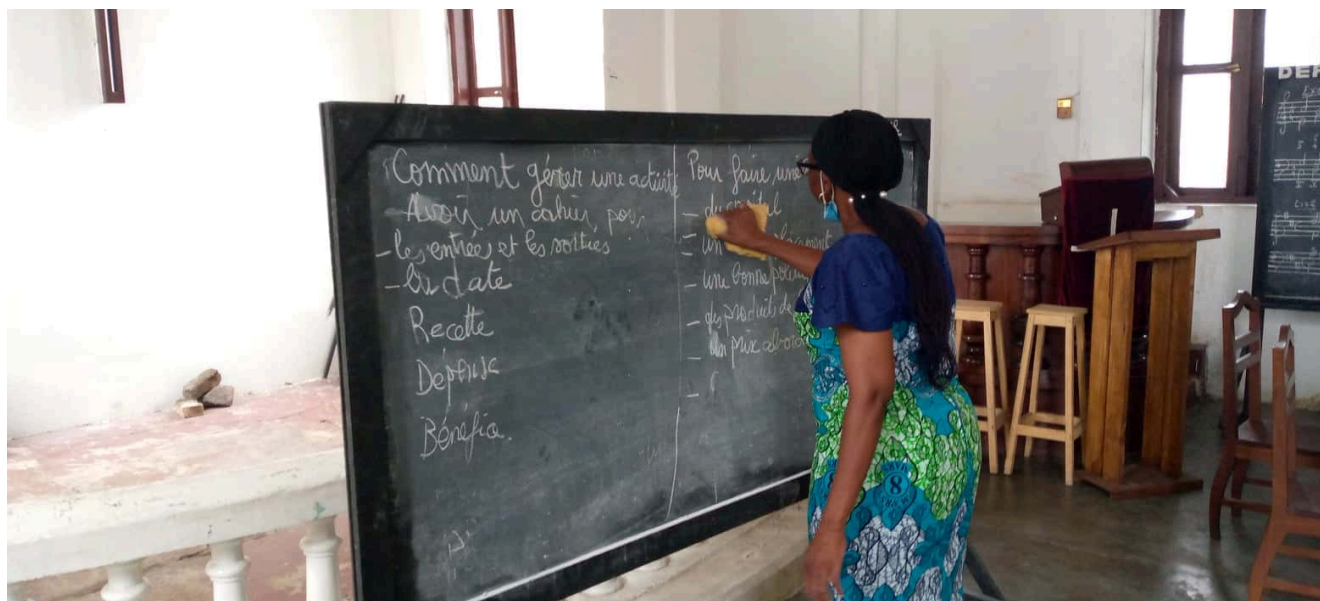 Comment gérer une activité
Avoir un cahier pour
- les entrées et les sorties
- la date
Recette
Dépense
Bénéfice.
Pour faire une
- du capital
- un
- une bonne
- des produits de
- prix
-
MARS
8